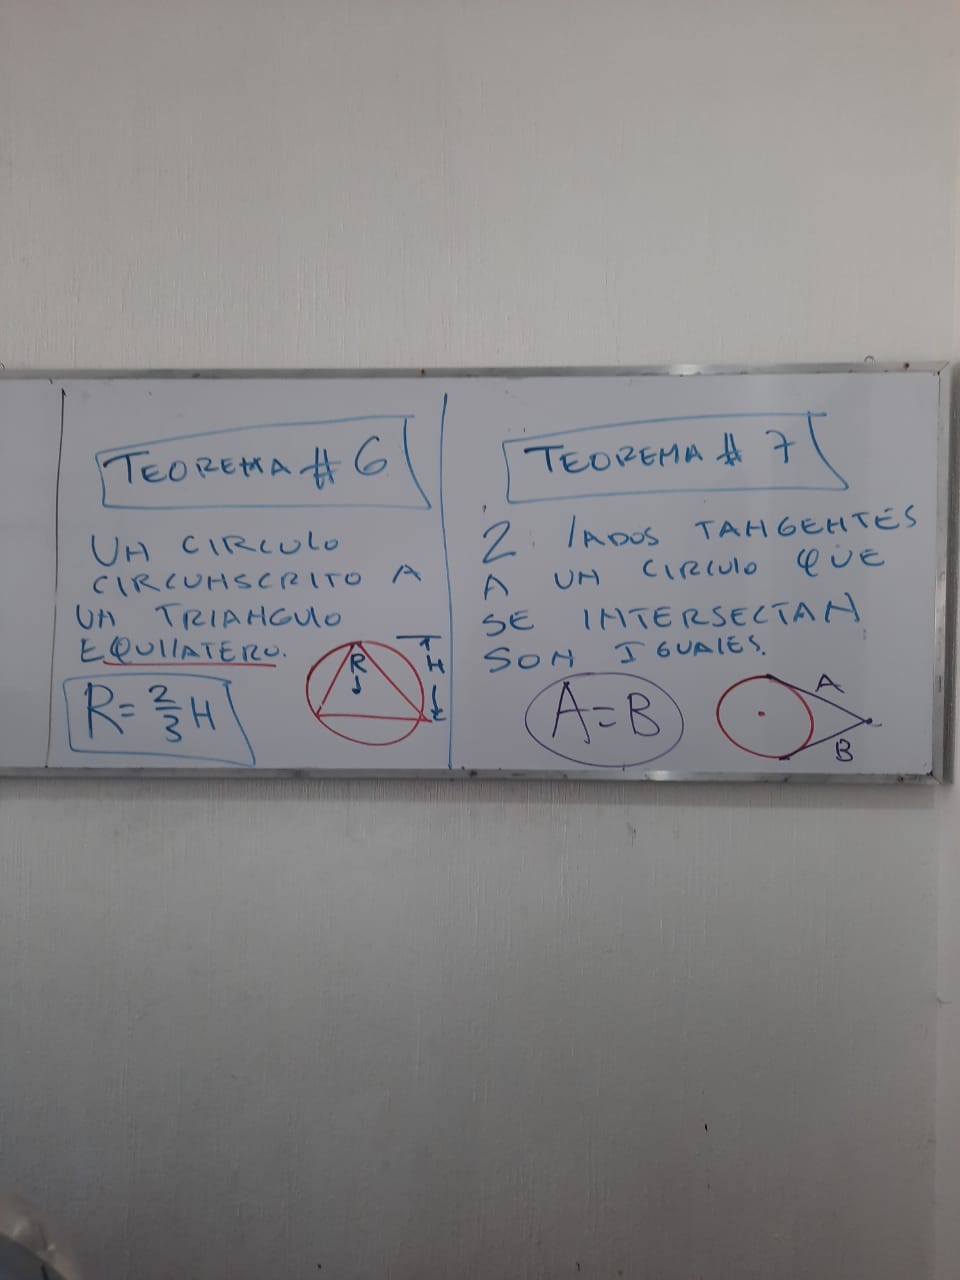 TEOREMA # 6
UN CIRCULO
CIRCUNSCRITO A
UN TRIANGULO
EQUILATERO.
R = 2/3 H
R
H
TEOREMA # 7
2 lADOS TANGENTES
A UN CIRCULO QUE
SE INTERSECTAN
SON IGUALES.
A = B
A
B